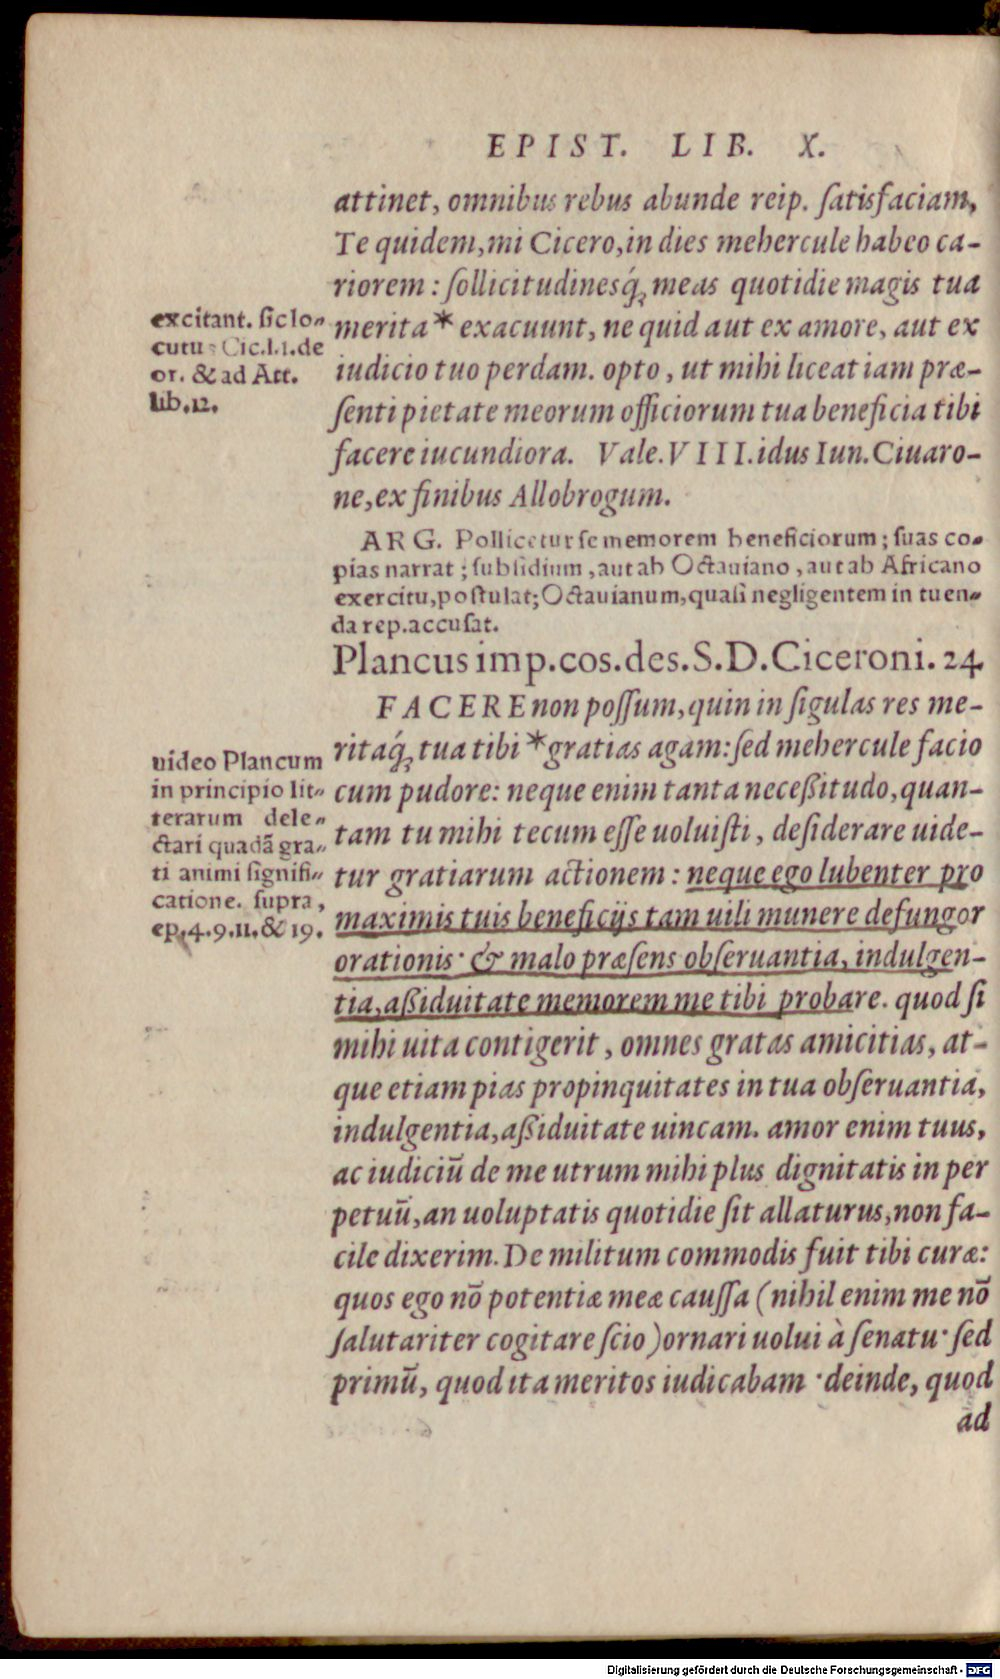 EPIST. LIB. X.
attinet, omnibus rebus abunde reip. ſatisfaciam,
Te quidem, mi Cicero, in dies mehercule habeo ca-
riorem: ſollicitudinesq́; meas quotidie magis tua
merita * exacuunt, ne quid aut ex amore, aut ex
iudicio tuo perdam. opto, ut mihi liceat iam præ-
ſenti pietate meorum officiorum tua beneficia tibi
facere iucundiora. Vale. VIII. idus Iun. Ciuaro-
ne, ex finibus Allobrogum.
excitant. ſic lo-
cutus Cic. l. 1. de
or. & ad Att.
lib. 12.
ARG. Pollicetur ſe memorem beneficiorum; ſuas co-
pias narrat; ſubſidium, aut ab Octauiano, aut ab Africano
exercitu, poſtulat; Octauianum, quaſi negligentem in tuen-
da rep. accuſat.
Plancus imp. cos. des. S. D. Ciceroni. 24
FACERE non poſſum, quin in ſigulas res me-
ritaq́; tua tibi * gratias agam: ſed mehercule facio
cum pudore: neque enim tanta neceßitudo, quan-
tam tu mihi tecum eſſe uoluiſti, deſiderare uide-
tur gratiarum actionem: neque ego lubenter pro
maximis tuis beneficijs tam uili munere defungor
orationis· & malo præſens obſeruantia, indulgen-
tia, aßiduitate memorem me tibi probare. quod ſi
mihi uita contigerit, omnes gratas amicitias, at-
que etiam pias propinquitates in tua obſeruantia,
indulgentia, aßiduitate uincam. amor enim tuus,
ac iudiciũ de me utrum mihi plus dignitatis in per
petuũ, an uoluptatis quotidie ſit allaturus, non fa-
cile dixerim. De militum commodis fuit tibi curæ:
quos ego nõ potentiæ meæ cauſſa (nihil enim me nõ
ſalutariter cogitare ſcio) ornari uolui à ſenatu· ſed
primũ, quod ita meritos iudicabam · deinde, quod
ad
uideo Plancum
in principio lit-
terarum dele-
ctari quadã gra-
ti animi ſignifi-
catione. ſupra,
ep. 4. 9. 11. & 19.
Digitalisierung gefördert durch die Deutsche Forschungsgemeinschaft - DFG